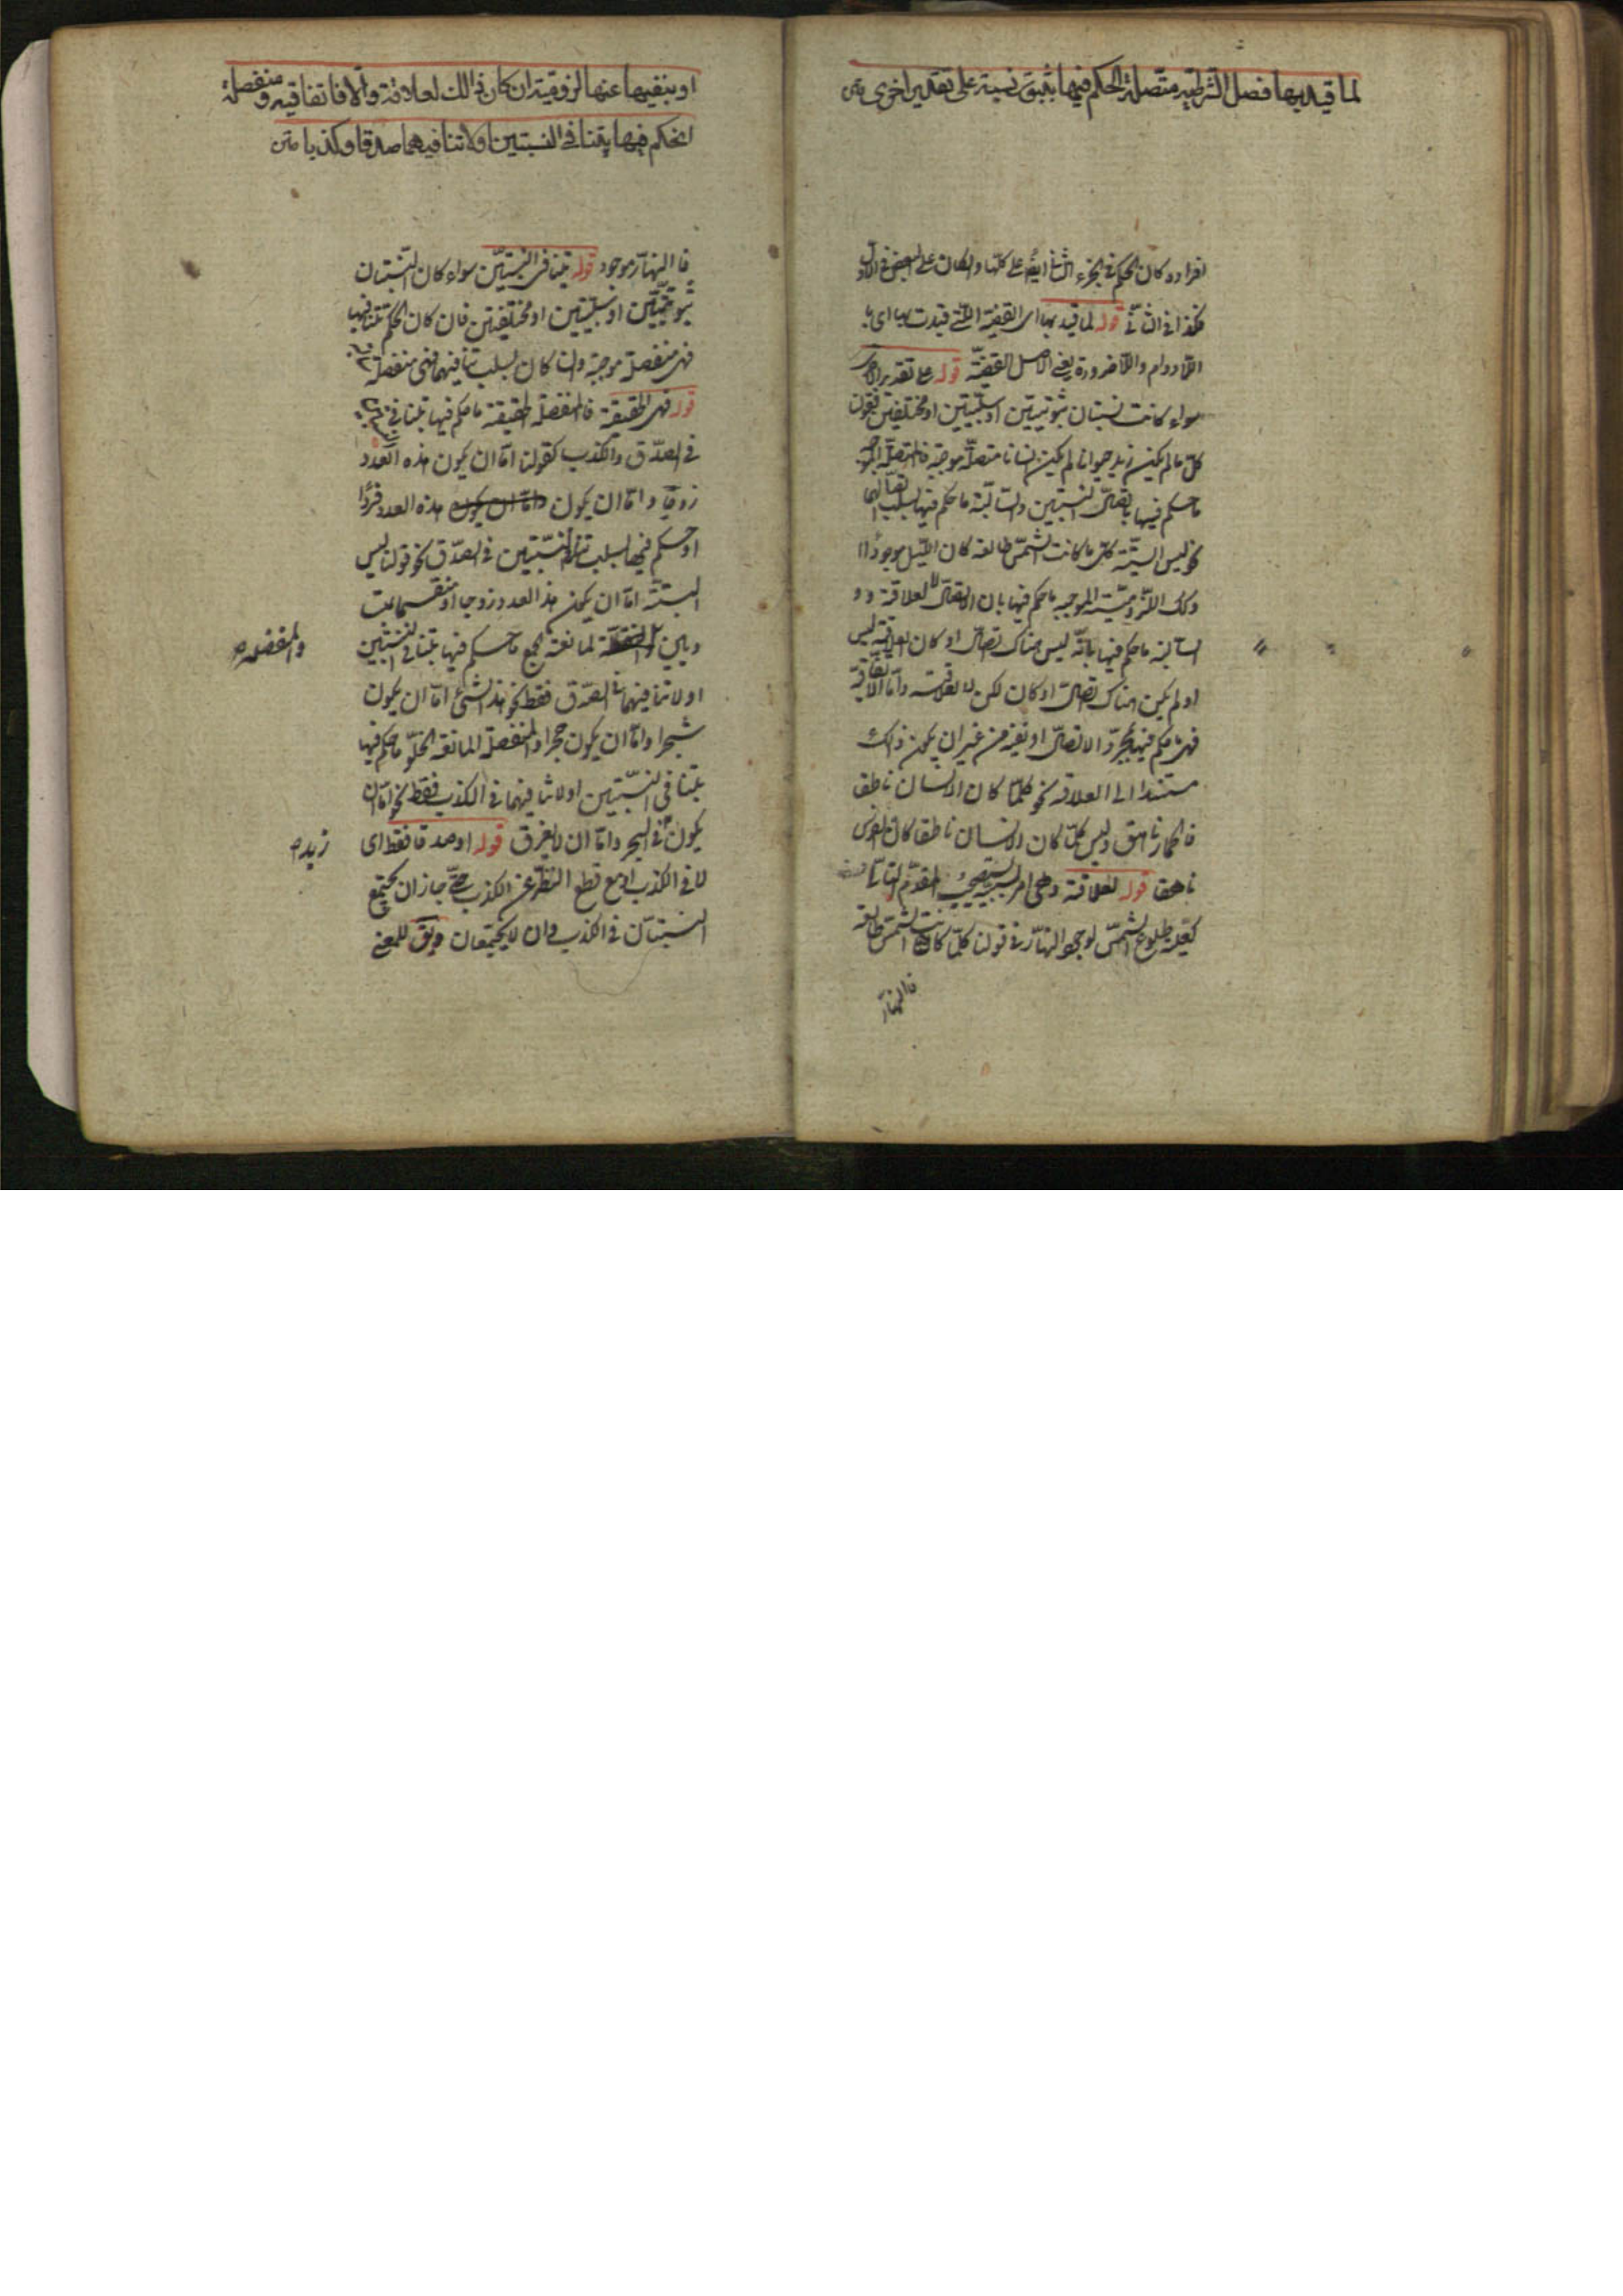 لما قيد بها فصل الشرطية متصلة الحكم فيها بثبوت نسبة على تقدير اخرى
افراده كان الحكم في الجزء الثانى ايضا على كلها وان كان على البعض فى الاول
فكذا فى الثانى قوله لما قيد بها اى القضية التى قيدت بها اى با
اللادوام واللاضرورة يعنى الاصل القضية قوله على تقدير اخرى
سواء كانت نسبتان ثبوتيتين او سلبيتين او مختلفتين فقولنا
كل ما لم يكن زيد حيوانا لم يكن انسانا متصلة موجبة فالمتصلة الموجبة
ما حكم فيها باتصال النسبتين والسالبة ما حكم فيها بسلب اتصالهما
نحو ليس البتة كل ما كانت الشمس طالعة كان الليل موجودا
وكك اللزومية الموجبة ما حكم فيها بان الاتصال لعلاقة و
السالبة ما حكم فيها بانه ليس هناك اتصال او كان لعلاقة ليس
او لم يكن هناك اتصال او كان لكن لا لعلاقة واما الاتفاقية
فهى ما حكم فيها بمجرد الاتصال او نفيه من غير ان يكون ذالك
مستندا الى العلاقة نحو كلما كان الانسان ناطقا
فالحمار ناهق وليس كلما كان الانسان ناطقا كان الفرس
ناهقا قوله لعلاقة وهى امر بسببه يستصحب المقدم التالى
كعلية طلوع الشمس لوجود النهار فى قولنا كلما كانت الشمس طالعة
فالنهار
او بنفيها عنها لزومية ان كان ذالك لعلاقة والا فاتفاقية ومنفصلة
ان حكم فيها بتنافى النسبتين او لا تنافيهما صدقا وكذبا متن
فا النهار موجود قوله بتنافى النسبتين سواء كان النسبتان
ثبوتيتين او سلبيتين او مختلفتين فان كان الحكم بتنافيهما
فهى منفصلة موجبة وان كان بسلب تنافيهما فهى منفصلة
قوله فهى الحقيقة فالمنفصلة الحقيقة ما حكم فيها بتنافى
فى الصدق والكذب كقولنا اما ان يكون هذه العدد
زوجا واما ان يكون واما ان يكون هذه العدد فردا
او حكم فيها بسلب تنافى النسبتين فى الصدق نحو قولنا ليس
البتة اما ان يكون هذ العدد زوجا او منقسما بمت
ويين والمنفصلة لمانعة الجمع ما حكم فيها بتنافى النسبتين
والمنفصلة صح
او لا تنافيهما فى الصدق فقط نحو هذ الشئ اما ان يكون
شجرا واما ان يكون حجرا والمنفصلة المانعة الخلو ما حكم فيها
بتنافى النسبتين او لا تنافيهما فى الكذب فقط نحو اما ان
يكون فى البحر واما ان لا يغرق قوله او صدقا فقط اى
زيد صح
لا فى الكذب او مع قطع النظر عن الكذب حتى جاز ان يجتمع
النسبتان فى الكذب وان لا يجتمعان ويق للمعنى